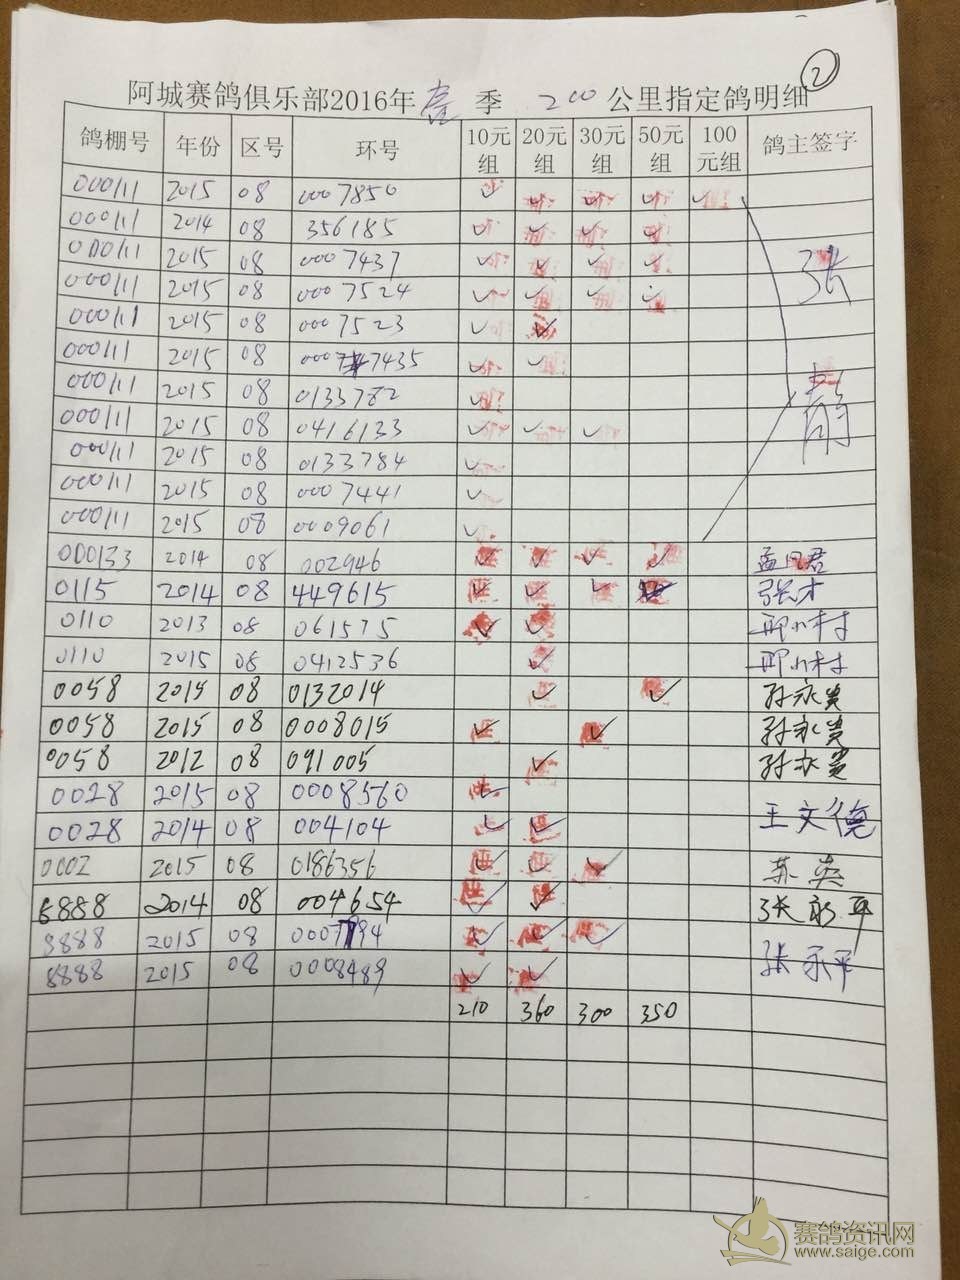 2
阿城赛鸽俱乐部2016年 春 季 200 公里指定鸽明细
鸽棚号 年份 区号 环号 10元组 20元组 30元组 50元组 100元组 鸽主签字
000111 2015 08 0007850 ✓ ✓ ✓ ✓ ✓
000111 2014 08 356185 ✓ ✓ ✓ ✓
000111 2015 08 0007437 ✓ ✓ ✓ ✓
000111 2015 08 0007524 ✓ ✓ ✓ ✓
000111 2015 08 0007523 ✓ ✓
000111 2015 08 0007435 ✓ ✓
000111 2015 08 0133782 ✓
000111 2015 08 0416133 ✓ ✓ ✓
000111 2015 08 0133784 ✓
000111 2015 08 0007441 ✓
000111 2015 08 0009061 ✓
张
000133 2014 08 002946 ✓ ✓ ✓ ✓ 孟凡君
0115 2014 08 449615 ✓ ✓ ✓ ✓ 张才
0110 2013 08 061575 ✓ ✓ 邢小村
0110 2015 08 0412536 ✓ 邢小村
0058 2015 08 0132014 ✓ ✓ 孙永贵
0058 2015 08 0008015 ✓ ✓ 孙永贵
0058 2012 08 091005 ✓ 孙永贵
0028 2015 08 0008560 ✓
0028 2014 08 004104 ✓ ✓ 王文德
0002 2015 08 0186356 ✓ ✓ ✓ 苏英
8888 2014 08 004654 ✓ ✓ 张永平
8888 2015 08 0007794 ✓ ✓ ✓
8888 2015 08 0008489 ✓ ✓ 张永平
210 360 300 350
赛鸽资讯网
www.saige.com